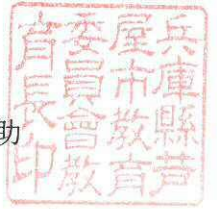 兵庫縣芦
屋市教育
委員會教
育長之印
助